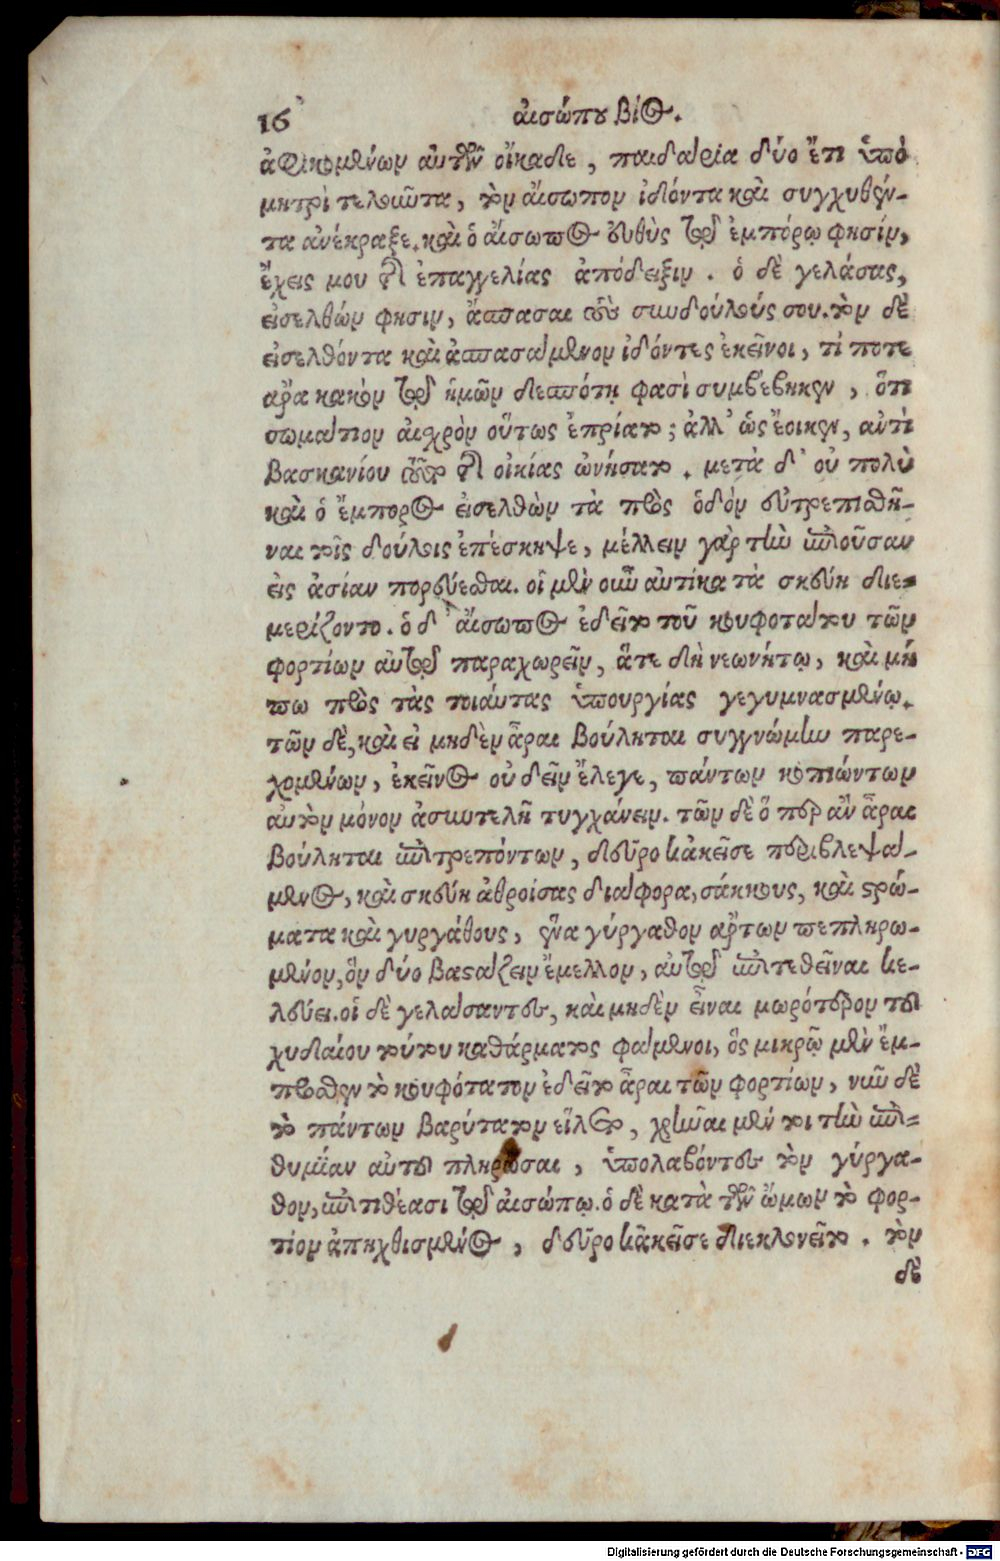 16 αἰσώπου βίος.
ἀφικομένων αὐτῶν οἴκαδε, παιδάρια δύο ἔτι ὑπὸ
μητρὶ τελοῦντα, τὸν αἴσωπον ἰδόντα καὶ συγχυθέν-
τα ἀνέκραξε. καὶ ὁ αἴσωπος εὐθὺς τῷ ἐμπόρῳ φησίν,
ἔχεις μου τῆς ἐπαγγελίας ἀπόδειξιν. ὁ δὲ γελάσας,
εἰσελθών φησιν, ἄσπασαι τοὺς συνδούλους σου. τὸν δὲ
εἰσελθόντα καὶ ἀσπασάμενον ἰδόντες ἐκεῖνοι, τί ποτε
ἄρα κακὸν τῷ ἡμῶν δεσπότῃ φασὶ συμβέβηκεν, ὅτι
σωμάτιον αἰσχρὸν οὕτως ἐπρίατο; ἀλλ' ὡς ἔοικεν, ἀντὶ
βασκανίου τοῦτο τῆς οἰκίας ὠνήσατο. μετὰ δ' οὐ πολὺ
καὶ ὁ ἔμπορος εἰσελθὼν τὰ πρὸς ὁδὸν εὐτρεπισθῆ-
ναι τοῖς δούλοις ἐπέσκηψε, μέλλειν γὰρ τὴν ἐπιοῦσαν
εἰς ἀσίαν πορεύεσθαι. οἱ μὲν οὖν αὐτίκα τὰ σκεύη διε-
μερίζοντο. ὁ δ' αἴσωπος ἐδεῖτο τοῦ κουφοτάτου τῶν
φορτίων αὐτῷ παραχωρεῖν, ἅτε δὴ νεωνήτῳ, καὶ μή
πω πρὸς τὰς τοιαύτας ὑπουργίας γεγυμνασμένῳ.
τῶν δὲ, καὶ εἰ μηδὲν ἆραι βούληται συγγνώμην παρε-
χομένων, ἐκεῖνος οὐ δεῖν ἔλεγε, πάντων κοπιώντων
αὐτὸν μόνον ἀσυντελῆ τυγχάνειν. τῶν δὲ ὅ περ ἂν ἆραι
βούληται ἐπιτρεπόντων, δεῦρο κἀκεῖσε περιβλεψά-
μενος, καὶ σκεύη ἀθροίσας διάφορα, σάκκους, καὶ στρώ-
ματα καὶ γυργάθους, ἕνα γύργαθον ἄρτων πεπληρω-
μένον, ὃν δύο βαστάζειν ἔμελλον, αὐτῷ ἐπιτεθεῖναι κε-
λεύει. οἱ δὲ γελάσαντες, καὶ μηδὲν εἶναι μωρότερον τοῦ
χυδαίου τούτου καθάρματος φάμενοι, ὃς μικρῷ μὲν ἔμ-
προσθεν τὸ κουφότατον ἐδεῖτο ἆραι τῶν φορτίων, νῦν δὲ
τὸ πάντων βαρύτατον εἵλετο, χρῆναι μέν τοι τὴν ἐπι-
θυμίαν αὐτοῦ πληρῶσαι, ὑπολαβόντες τὸν γύργα-
θον, ἐπιτιθέασι τῷ αἰσώπῳ. ὁ δὲ κατὰ τῶν ὤμων τὸ φορ-
τίον ἀπηχθισμένος, δεῦρο κἀκεῖσε διεκλονεῖτο. τὸν
δὲ
Digitalisierung gefördert durch die Deutsche Forschungsgemeinschaft - DFG